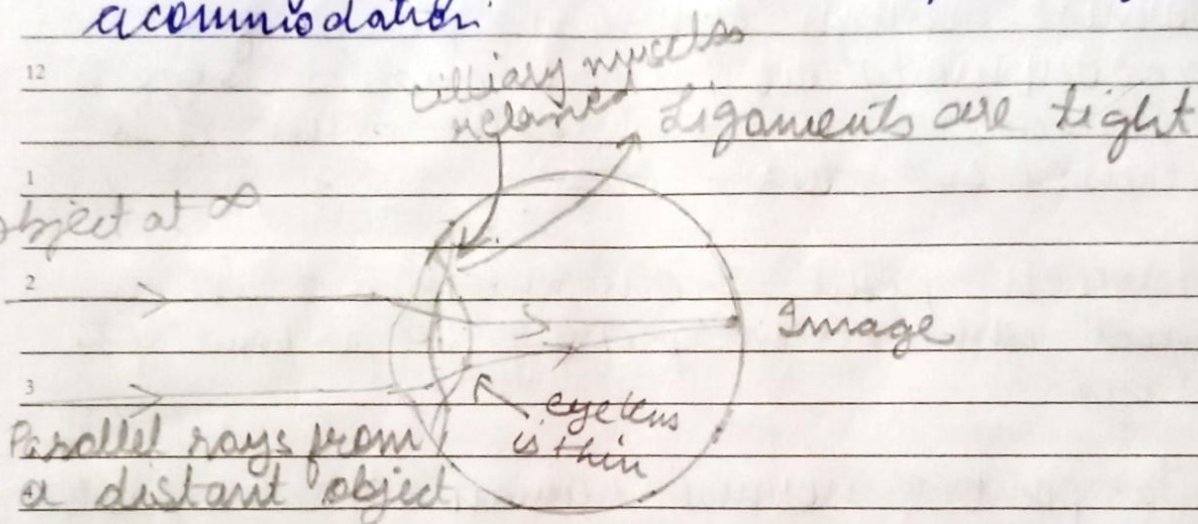 acommodation
12
cilliary muscels
relaxed
Ligaments are tight
1
object at ∞
2
Image
3
eye lens
is thin
Parallel rays from
a distant object